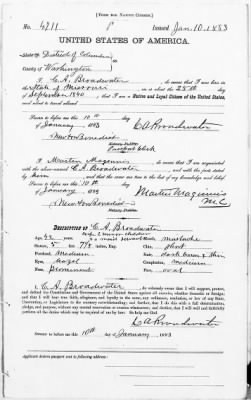 [FORM FOR NATIVE CITIZEN.]
No. 4211
Issued Jan. 10. 1883
UNITED STATES OF AMERICA.
District of Columbia
County of Washington
I, C. A. Broadwater, do swear that I was born in
the State of Missouri on or about the 25th day
of September 1840, that I am a Native and Loyal Citizen of the United States,
and about to travel abroad
Sworn to before me this 10th day
of January 1883
C A Broadwater
Notary Public
I, Martin Maginnis, do swear that I am acquainted
with the above-named C. A. Broadwater, and with the facts stated
by him, and that the same are true to the best of my knowledge and belief.
Sworn to before me this 10th day
of January 1883
Martin Maginnis
M C
Notary Public
DESCRIPTION OF C. A. Broadwater
Age, 42
Stature, 5
Forehead, Medium
Eyes, hazel
Nose, prominent
Mouth, mustache
Chin, short
Hair, dark brown & thin
Complexion, medium
Face, oval
I, C. A. Broadwater, do solemnly swear that I will support, protect,
and defend the Constitution and Government of the United States against all enemies, whether domestic or foreign,
and that I will bear true faith, allegiance, and loyalty to the same, any ordinance, resolution, or law of any State,
Convention, or Legislature to the contrary notwithstanding; and further, that I do this with a full determination,
pledge, and purpose, without any mental reservation or evasion whatsoever; and, further, that I will well and faithfully
perform all the duties which may be required of me by law. So help me God.
C A Broadwater
Sworn to before me this 10th January 1883